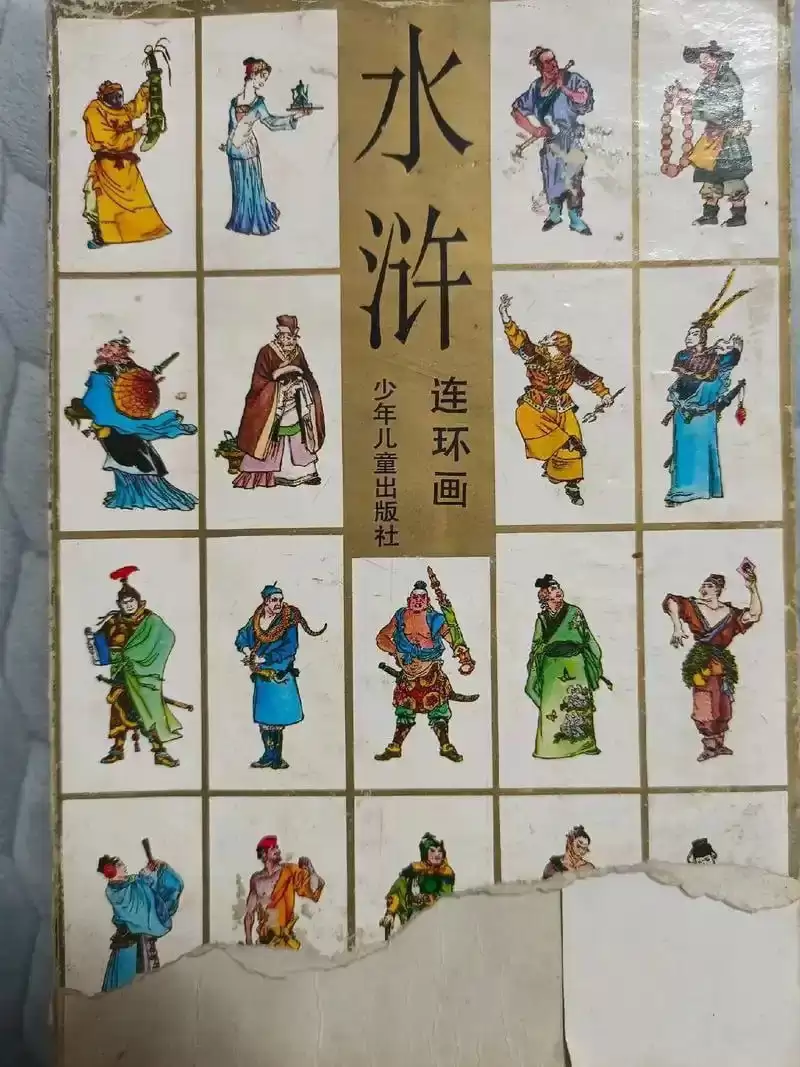 水浒
连环画
少年儿童出版社